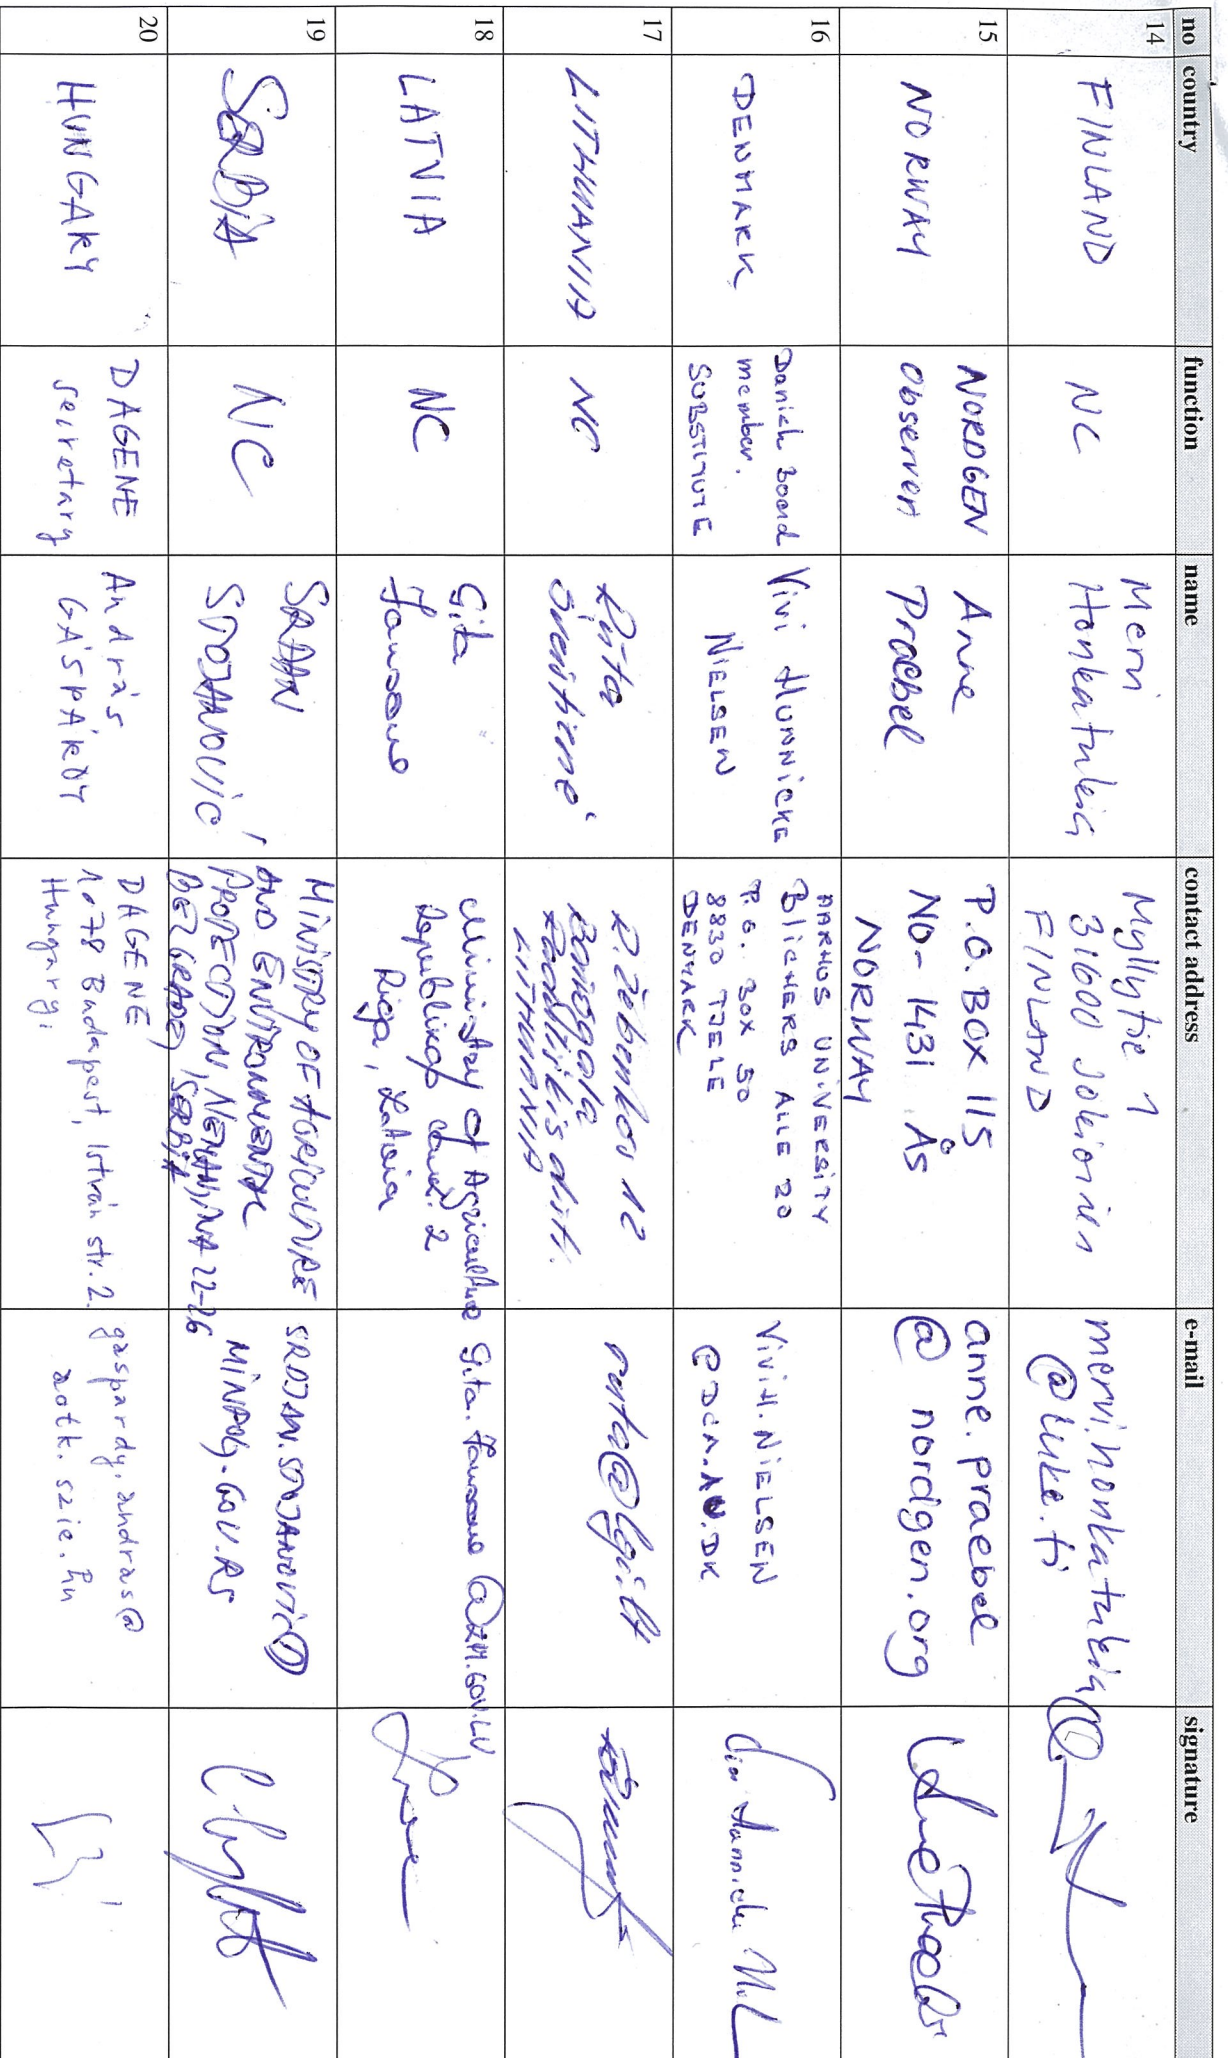 no country function name contact address e-mail signature
14 FINLAND NC Mervi
Honkatukia Myllytie 1
31600 Jokioinen
FINLAND mervi.honkatukia
@luke.fi
15 NORWAY NORDGEN
observer Anne
Præbel P.O.BOX 115
NO-1431 Ås
NORWAY anne.praebel
@nordgen.org
16 DENMARK Danich Board
member.
SUBSTITUTE Vivi HUNNICKE
NIELSEN AARHUS UNIVERSITY
BlicHERS ALLE 20
P.O. BOX 50
8830 TJELE
DENMARK ViviH.NIELSEN
@DCA.AU.DK
17 LITHUANIA NC Rūta
Šveistienė R. Žebenkos 12
Baisogala
Radviliškis distr.
LITHUANIA ruta@lgi.lt
18 LATVIA NC Gita
Jansone Ministry of Agriculture
Republikas Sq. 2
Riga, Latvia Gita.Jansone@ZM.GOV.LV
19 SERBIA NC SRĐAN
STOJANOVIĆ MINISTRY OF AGRICULTURE
AND ENVIRONMENTAL
PROTECTION, NEMANJINA 22-26
BELGRADE, SERBIA SRDJAN.STOJANOVIC@
MINPOLJ.GOV.RS
20 HUNGARY DAGENE
secretary András
GÁSPÁRDY DAGENE
1078 Budapest, István str. 2.
Hungary, gaspardy.andras@
aotk.szie.hu